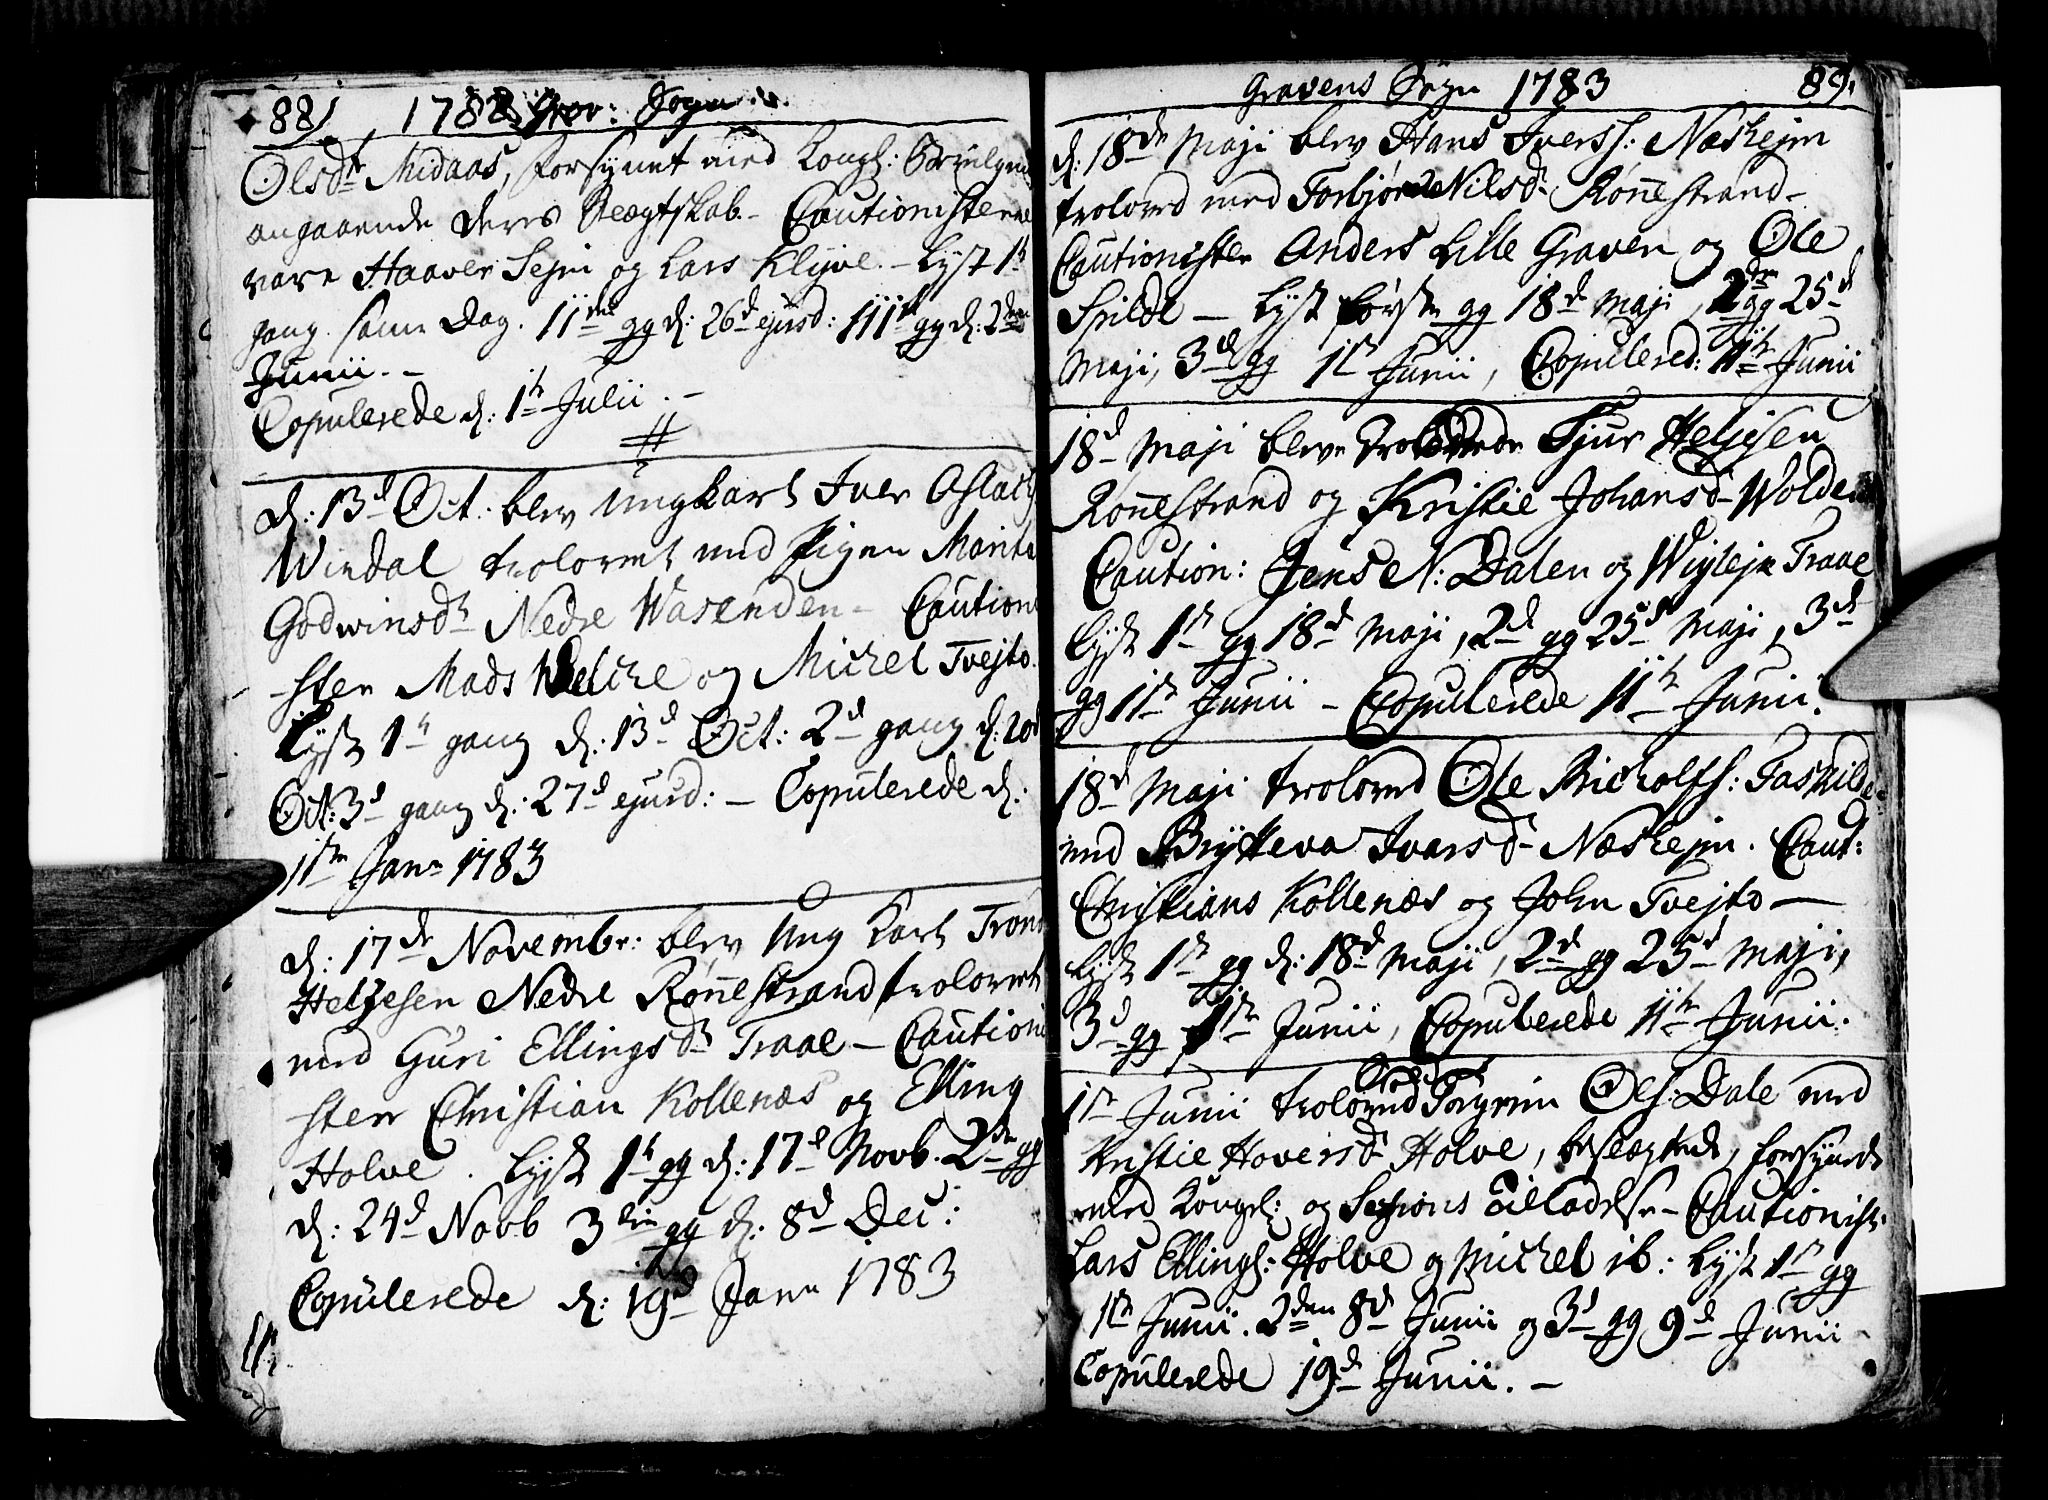 88) 1782 Grav: Sogn
Olsdr Midaas, forsynet med Kongl:
angaaende deres Slægtskab - Cautionisterne
vare Haaver Sejm og Lars Klyve. - Lyst 1te
gang samme Dag. IIden gg d: 26d ejusd: IIIdie gg d: 2den
Junii. -
Copulerede d: 1te Julii. -
d: 13d Oct: blev Ungkarl Iver Aslach
Windal trolovet med Pigen Marita
Godwinsdr Nedre Wasenden - Caution
-ster Mads Welche og Michel Tvejto.
Lyst 1te gang d: 13d Oct: 2d gang d: 20d
Oct: 3d gang d: 27d ejusd: - Copulerede d:
1ste Janr 1783
d: 17de Novembr: blev Ung Karl Trond
Heljesen Nedre Rønnestrand trolovet
med Guri Ellingsdr Traae - Caution
ster Christian Kollenæs og Elling
Holve. Lyst 1te gg d: 17d Novb. 2den gg
d: 24d Novb 3die gg d: 8d Dec:
Copulerede d: 19d Janr 1783
Gravens Sogn 1783 89.
d: 18de Maji blev Hans Iverss: Næshejm
troloved med Torbjør Nilsd- Rønnestrand -
Cautionister Anders Lille Graven og Ole
Spilde - Lyst første gg 18d Maji, 2den gg 25d
Maji, 3d gg 1ste Junii, Copulered: 11te Junii
18d Maji bleve trolovede Sjur Heljesen
Rønnestrand og Kristie Johansd- Wolden
Caution: Jens N: Dalen og Wiglejk Traae
Lyst 1ste gg 18d Maji, 2d gg 25d Maji, 3d
gg 1ste Junii - Copulerede 11te Junii.
18d Maji troloved Ole Bricholfs: Taskilde
med Brytteva Ivarsd- Næshejm. Caut:
Christians Kollenæs og John Tvejto -
Lyst 1ste gg d: 18d Maji, 2d gg 25d Maji,
3d gg 1ste Junii, Copulerede 11te Junii.
1ste Junii troloved Torgrim Oles: Dale med
Kristie Hoversd- Holve, beslægtede, forsynede
med Kongel: og Sessions Tilladelse - Cautionist:
Lars Ellings: Holve og Michel ib: Lyst 1ste gg
1ste Junii. 2den 8d Junii og 3d gg 9d Junii
Copulerede 19d Junii. -